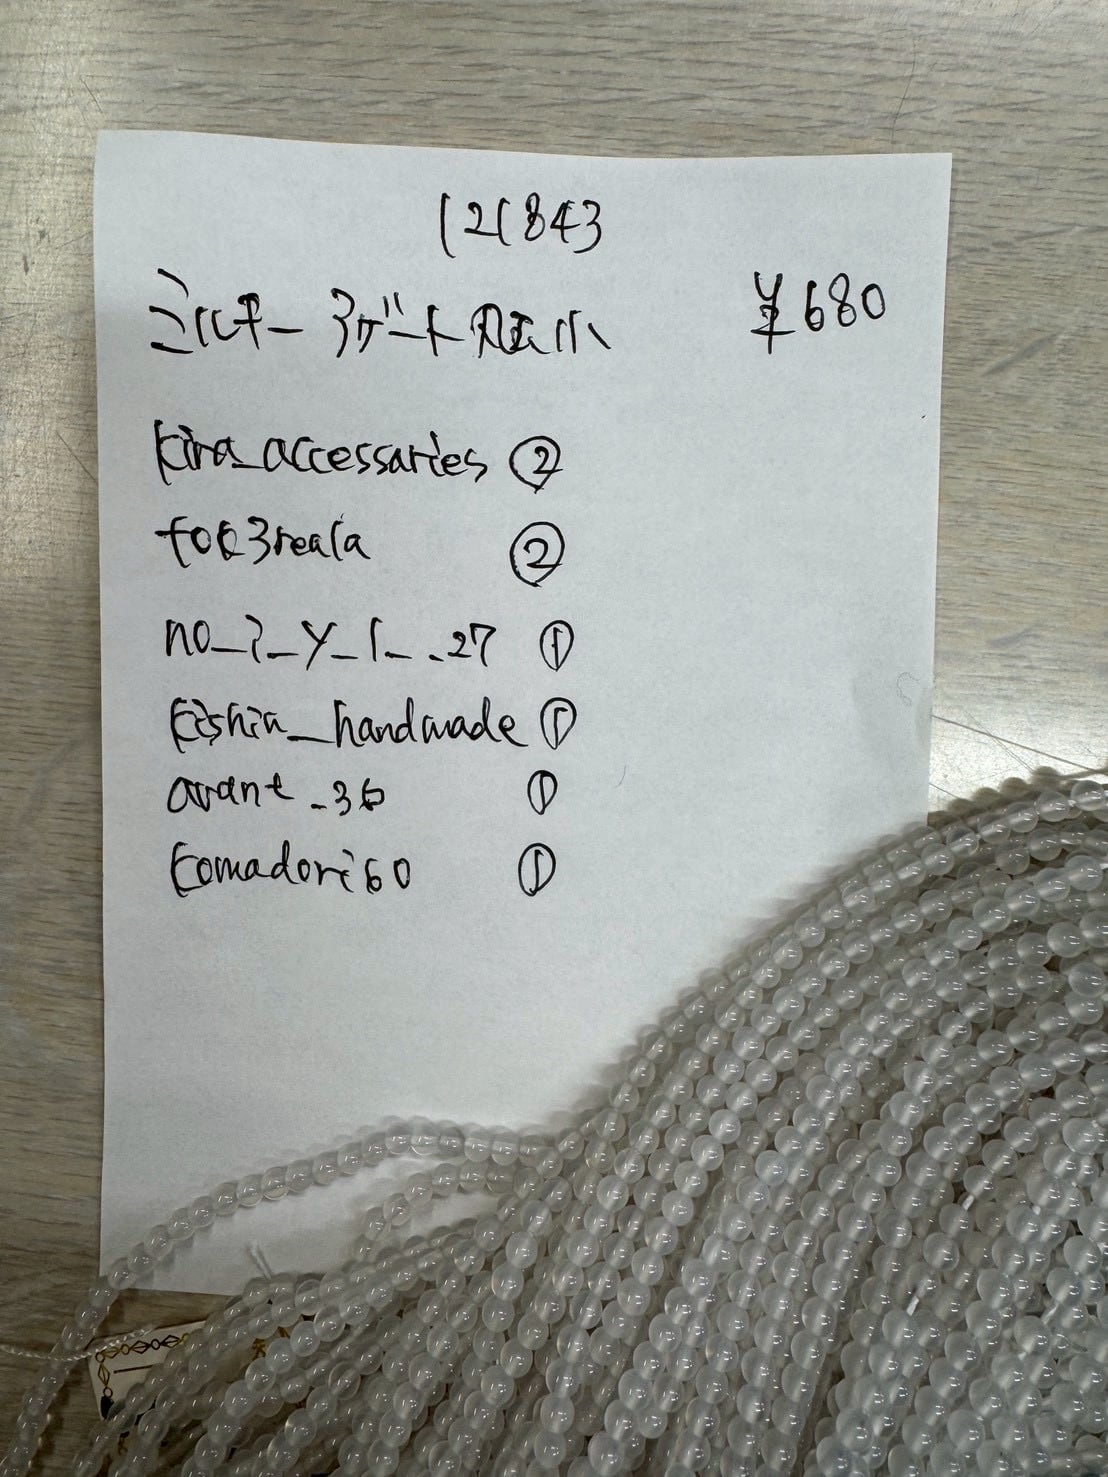 121843
ミルキーアゲート 丸玉 小 ¥680
kira_accessaries ②
tok3reala ②
no_i_y_l_._27 ①
kishin_handmade ①
avant_36 ①
komadori60 ①